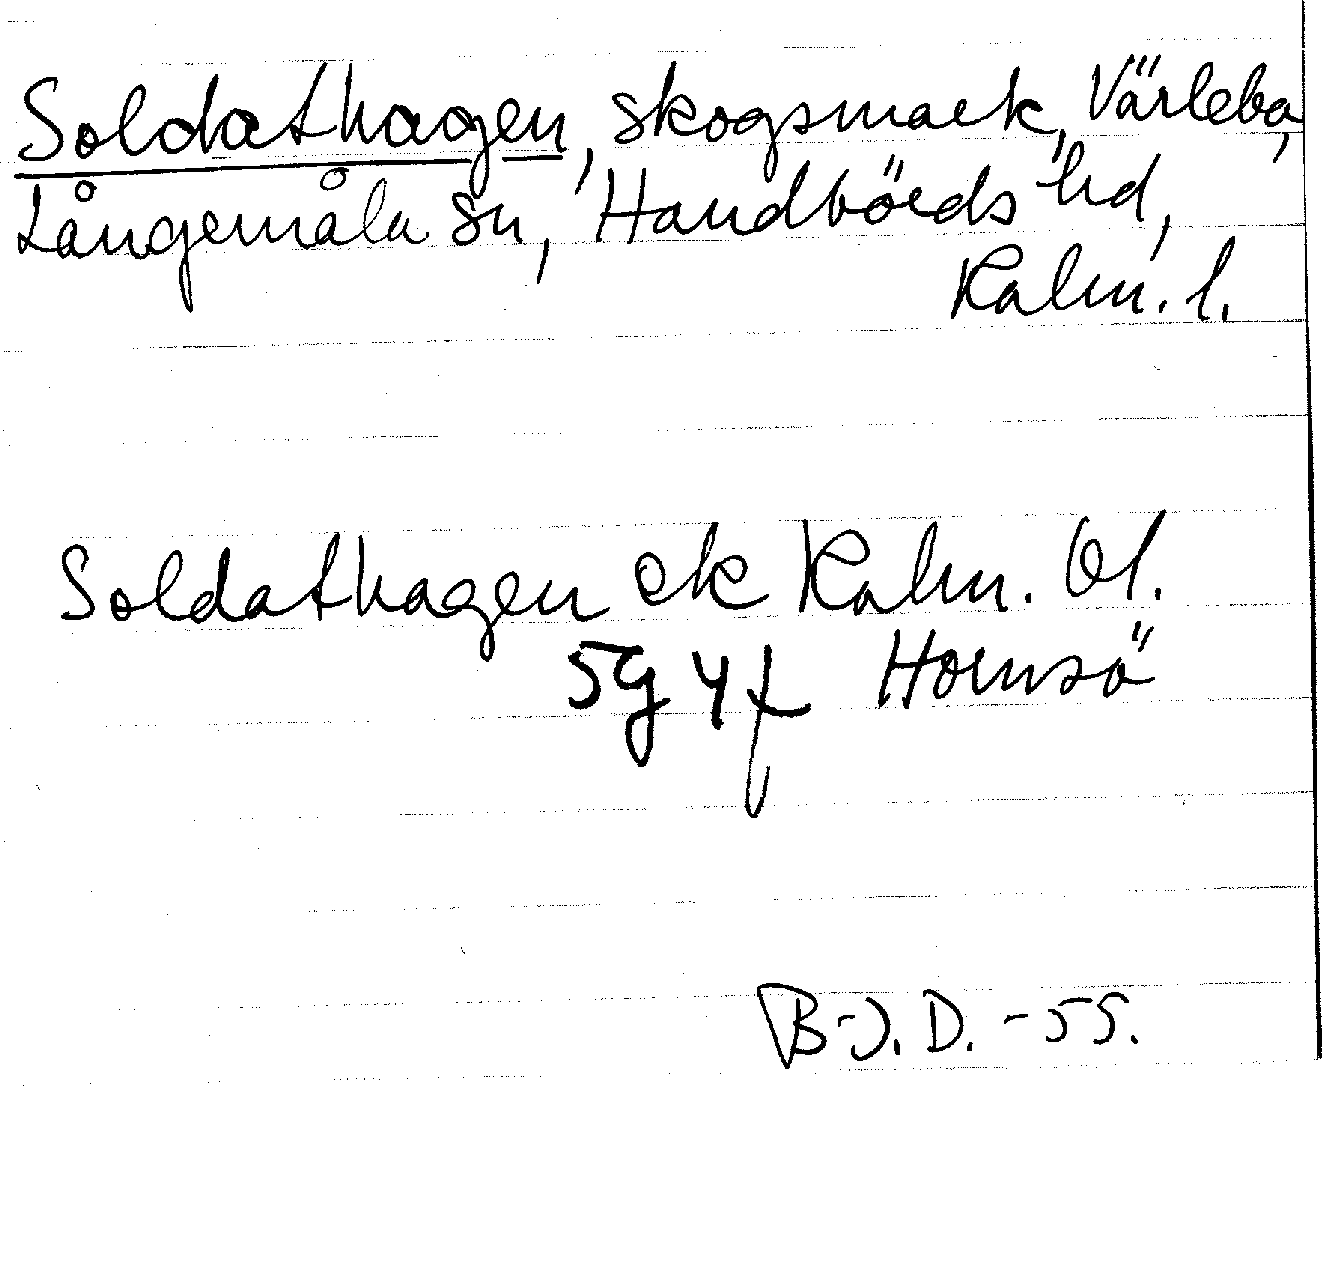 Soldathagen, skogsmark, Värleba,
Långemåla sn, Handbörds hd,
Kalm. l.
Soldathagen ek Kalm. bl.
5g 4f Hornsö
B-J. D. -55.